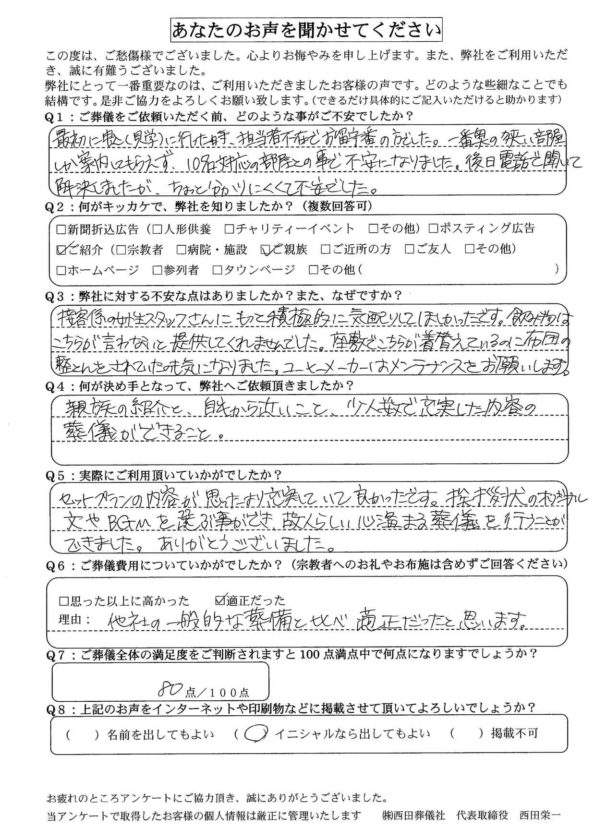 あなたのお声を聞かせてください
この度は、ご愁傷様でございました。心よりお悔やみを申し上げます。また、弊社をご利用いただ
き、誠に有難うございました。
弊社にとって一番重要なのは、ご利用いただきましたお客様の声です。どのような些細なことでも
結構です。是非ご協力をよろしくお願い致します。(できるだけ具体的にご記入いただけると助かります)
Q1:ご葬儀をご依頼いただく前、どのような事がご不安でしたか?
最初に見学に行した時、担当者不在でお留守番の方でした。一番奥の狭い部屋
しか案内してもらえず、10名対応の部屋との事で不安になりました。後日電話で聞いて
解決しましたが、ちょっと分かりにくくて不安でした。
Q2:何がキッカケで、弊社を知りましたか?(複数回答可)
□新聞折込広告(□人形供養 □チャリティーイベント □その他) □ポスティング広告
☑ご紹介(□宗教者 □病院・施設 ☑ご親族 □ご近所の方 □ご友人 □その他)
□ホームページ □参列者 □タウンページ □その他( )
Q3:弊社に対する不安な点はありましたか?また、なぜですか?
接客係の女性スタッフさんにもっと積極的に気配りしてほしかったです。飲み物は
こちらが言わないと提供してくれませんでした。座敷でこちらが着替えているのに布団の
整とんをされていたのも気になりました。コーヒーメーカーはメンテナンスをお願いします。
Q4:何が決め手となって、弊社へご依頼頂きましたか?
親族の紹介と、自宅から近いこと、少人数で充実した内容の
葬儀ができること。
Q5:実際にご利用頂いていかがでしたか?
セットプランの内容が思ったより充実していて良かったです。挨拶状のオリジナル
文やBGMを選ぶ事ができ、故人らしい心温まる葬儀を行うことが
できました。ありがとうございました。
Q6:ご葬儀費用についていかがでしたか?(宗教者へのお礼やお布施は含めずご回答ください)
□思った以上に高かった ☑適正だった
理由: 他社の一般的な葬儀と比べ適正だったと思います。
Q7:ご葬儀全体の満足度をご判断されますと100点満点中で何点になりますでしょうか?
80点/100点
Q8:上記のお声をインターネットや印刷物などに掲載させて頂いてよろしいでしょうか?
( )名前を出してもよい (○)イニシャルなら出してもよい ( )掲載不可
お疲れのところアンケートにご協力頂き、誠にありがとうございました。
当アンケートで取得したお客様の個人情報は厳正に管理いたします ㈱西田葬儀社 代表取締役 西田栄一